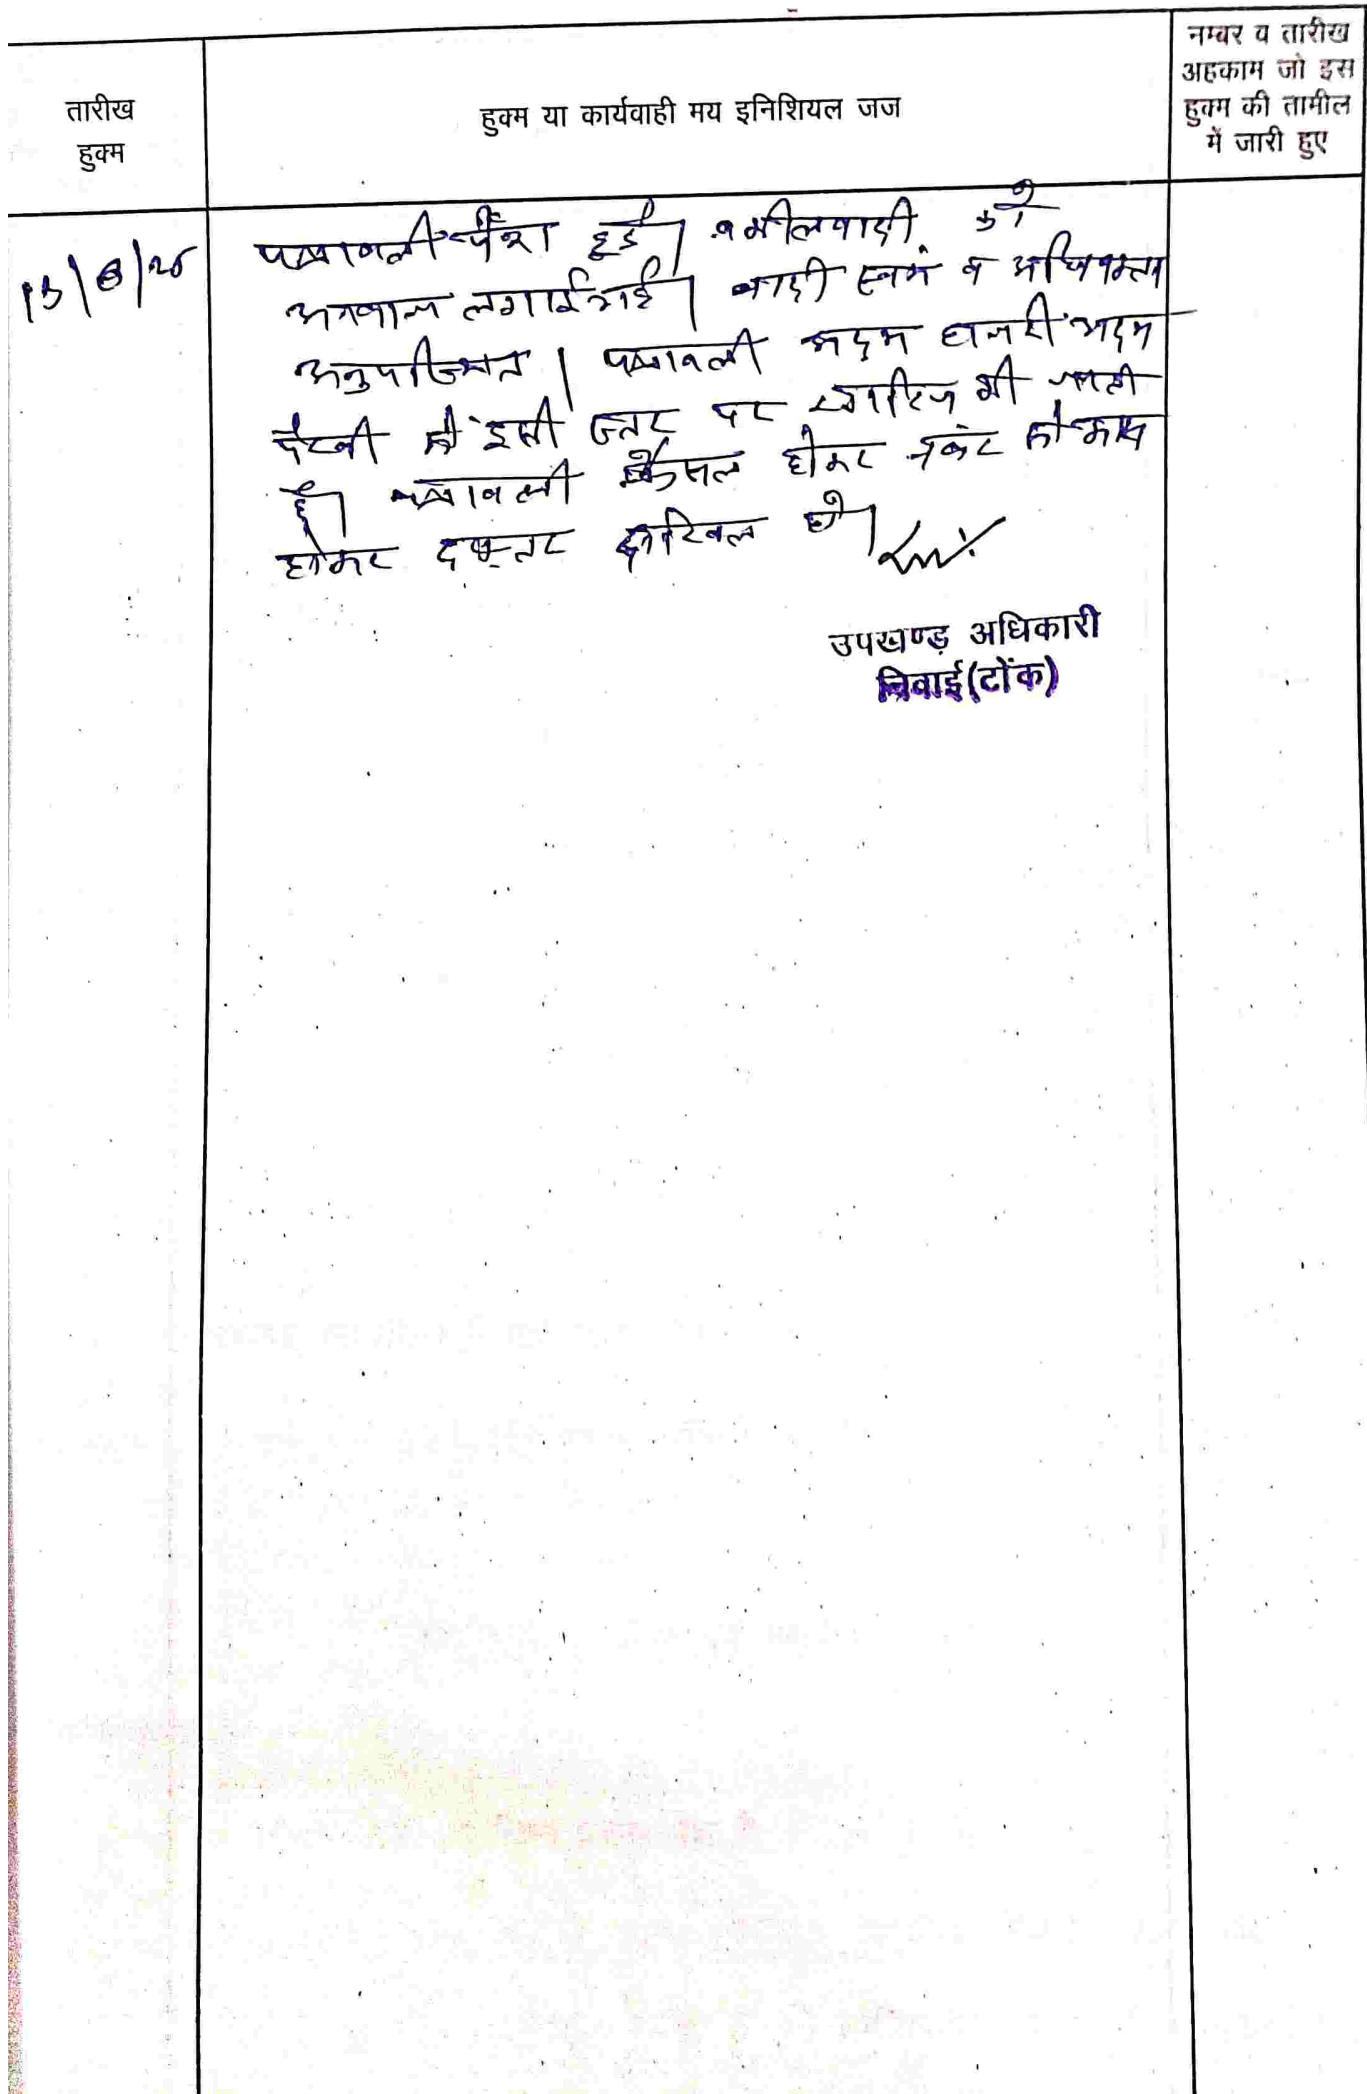 तारीख
हुक्म
हुक्म या कार्यवाही मय इनिशियल जज
नम्बर व तारीख
अहकाम जो इस
हुक्म की तामील
में जारी हुए
पत्रावली पेश हुई। वकील वादी को
आवाज लगाई गई। वादी स्वयं व अधिवक्ता
अनुपस्थित। पत्रावली अदम हाजरी अदम
पैरवी में इसी स्तर पर खारिज की जाती
है। पत्रावली फैसल होकर नम्बर से कम
होकर दफ्तर दाखिल हो।
उपखण्ड़ अधिकारी
निवाई(टोंक)